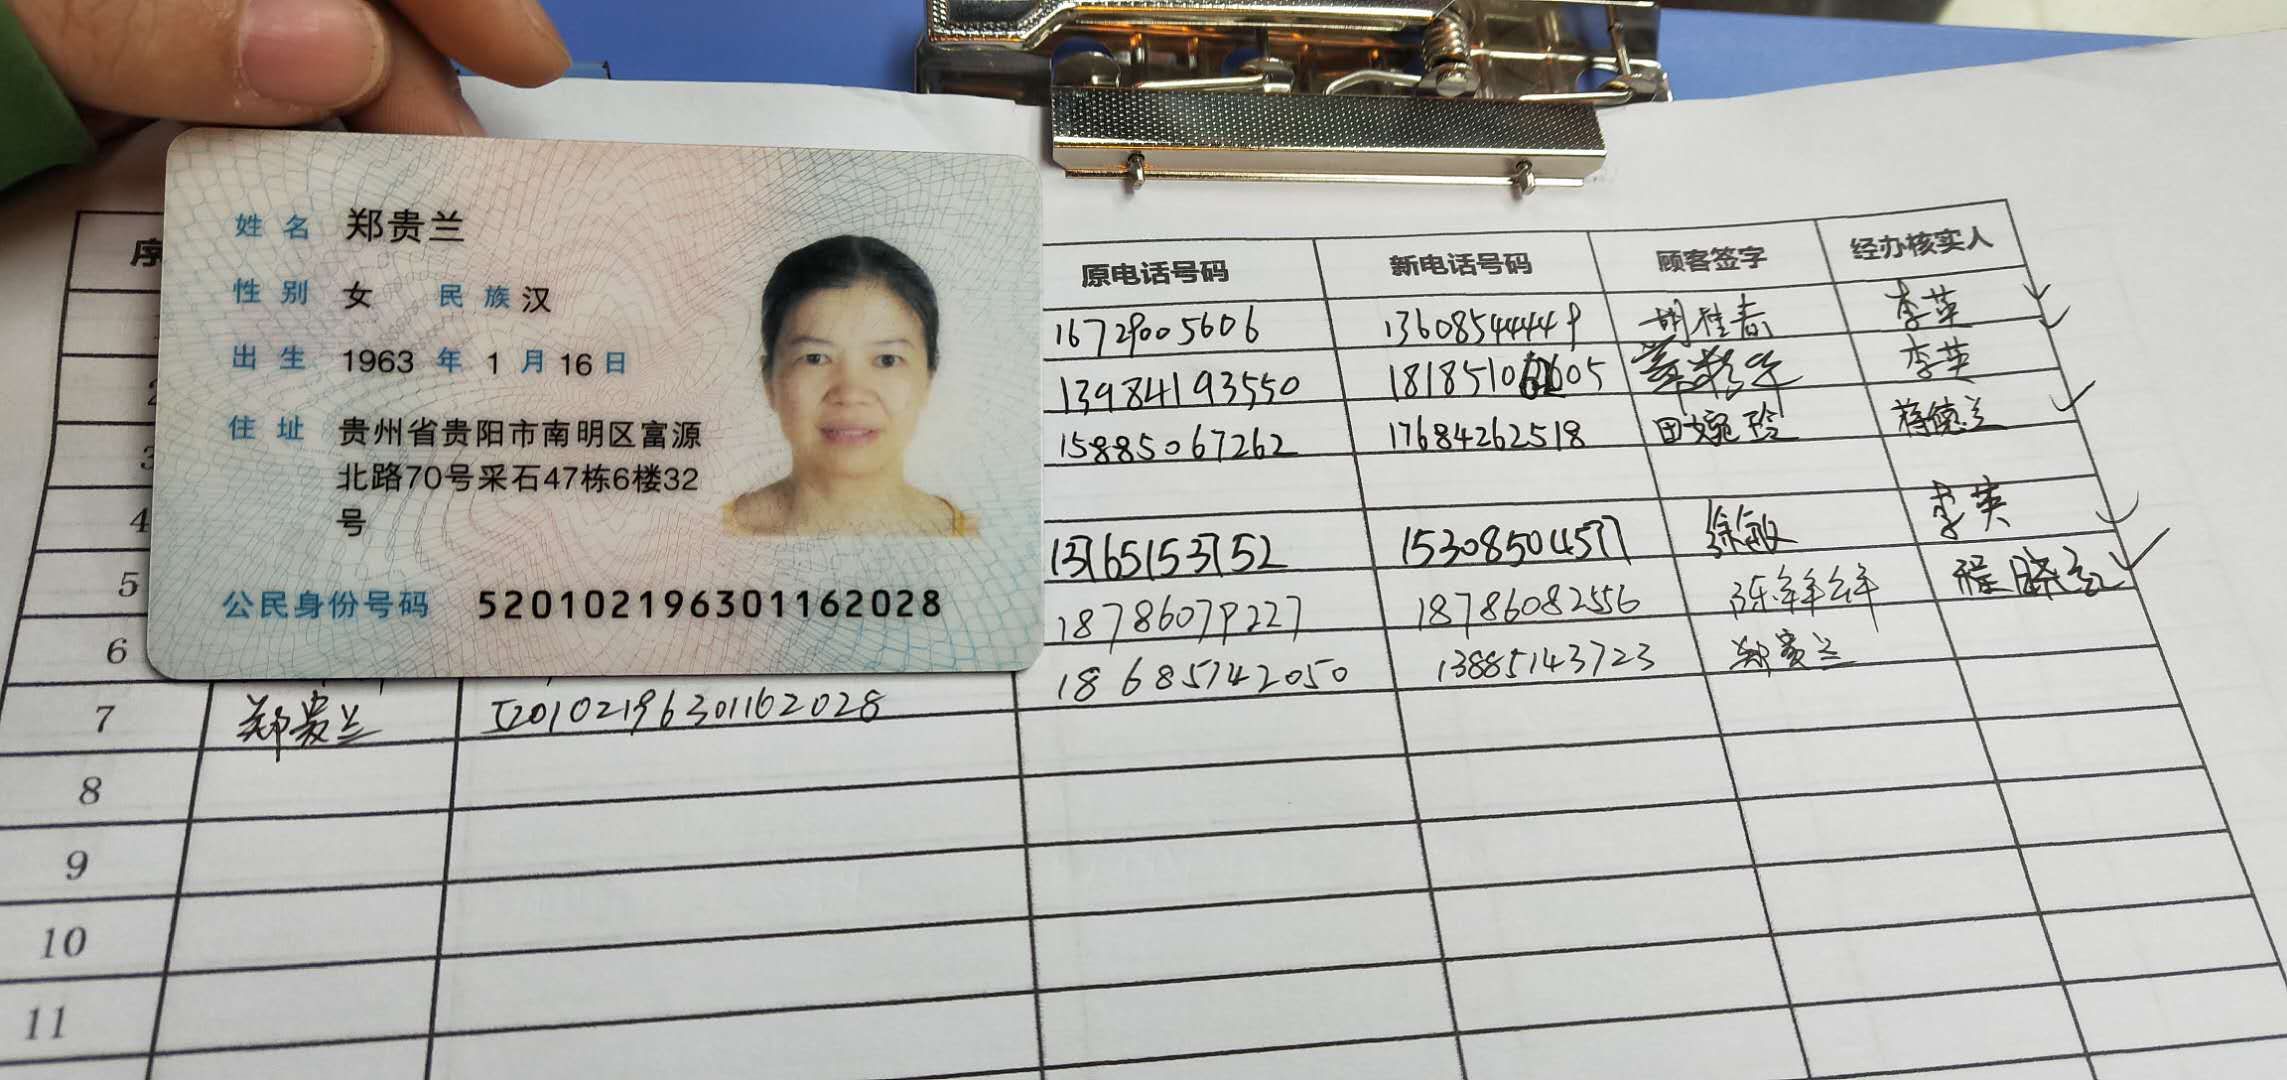 姓名 郑贵兰
性别 女 民族 汉
出生 1963 年 1 月 16 日
住址 贵州省贵阳市南明区富源
北路70号采石47栋6楼32
号
公民身份号码 520102196301162028
序 原电话号码 新电话号码 顾客签字 经办核实人
16729005606 13608544449 胡桂春 李英
2 13984193550 李英
3 15885067262 17684262518 田婉玲 蒋德兰
4
5 13765153752 15308504577 徐敏 李英
6 18786079227 18786082556 陈
7 郑贵兰 520102196301162028 18685142050 13885143723 郑贵兰
8
9
10
11